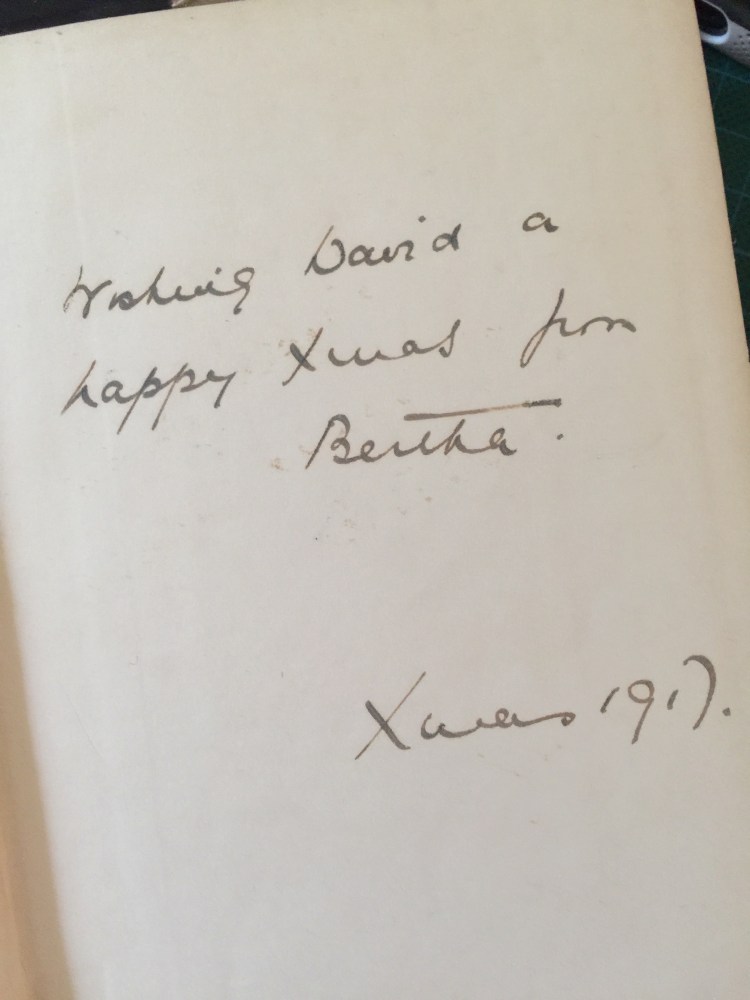 Wishing David a
happy Xmas from
Bertha.
Xmas 1917.